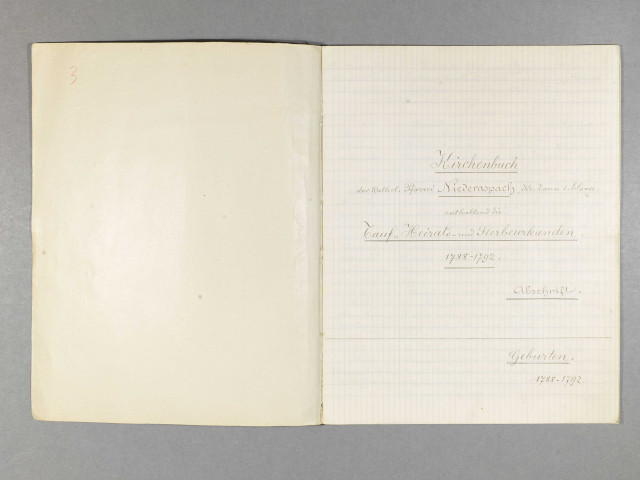 3
Kirchenbuch
der kathol. Pfarrei Niederaspach, Kr. Tann i. Elsass
enthaltend die
Tauf-, Heirats- und Sterbeurkunden
1788-1792.
Abschrift.
Geburten.
1788-1792